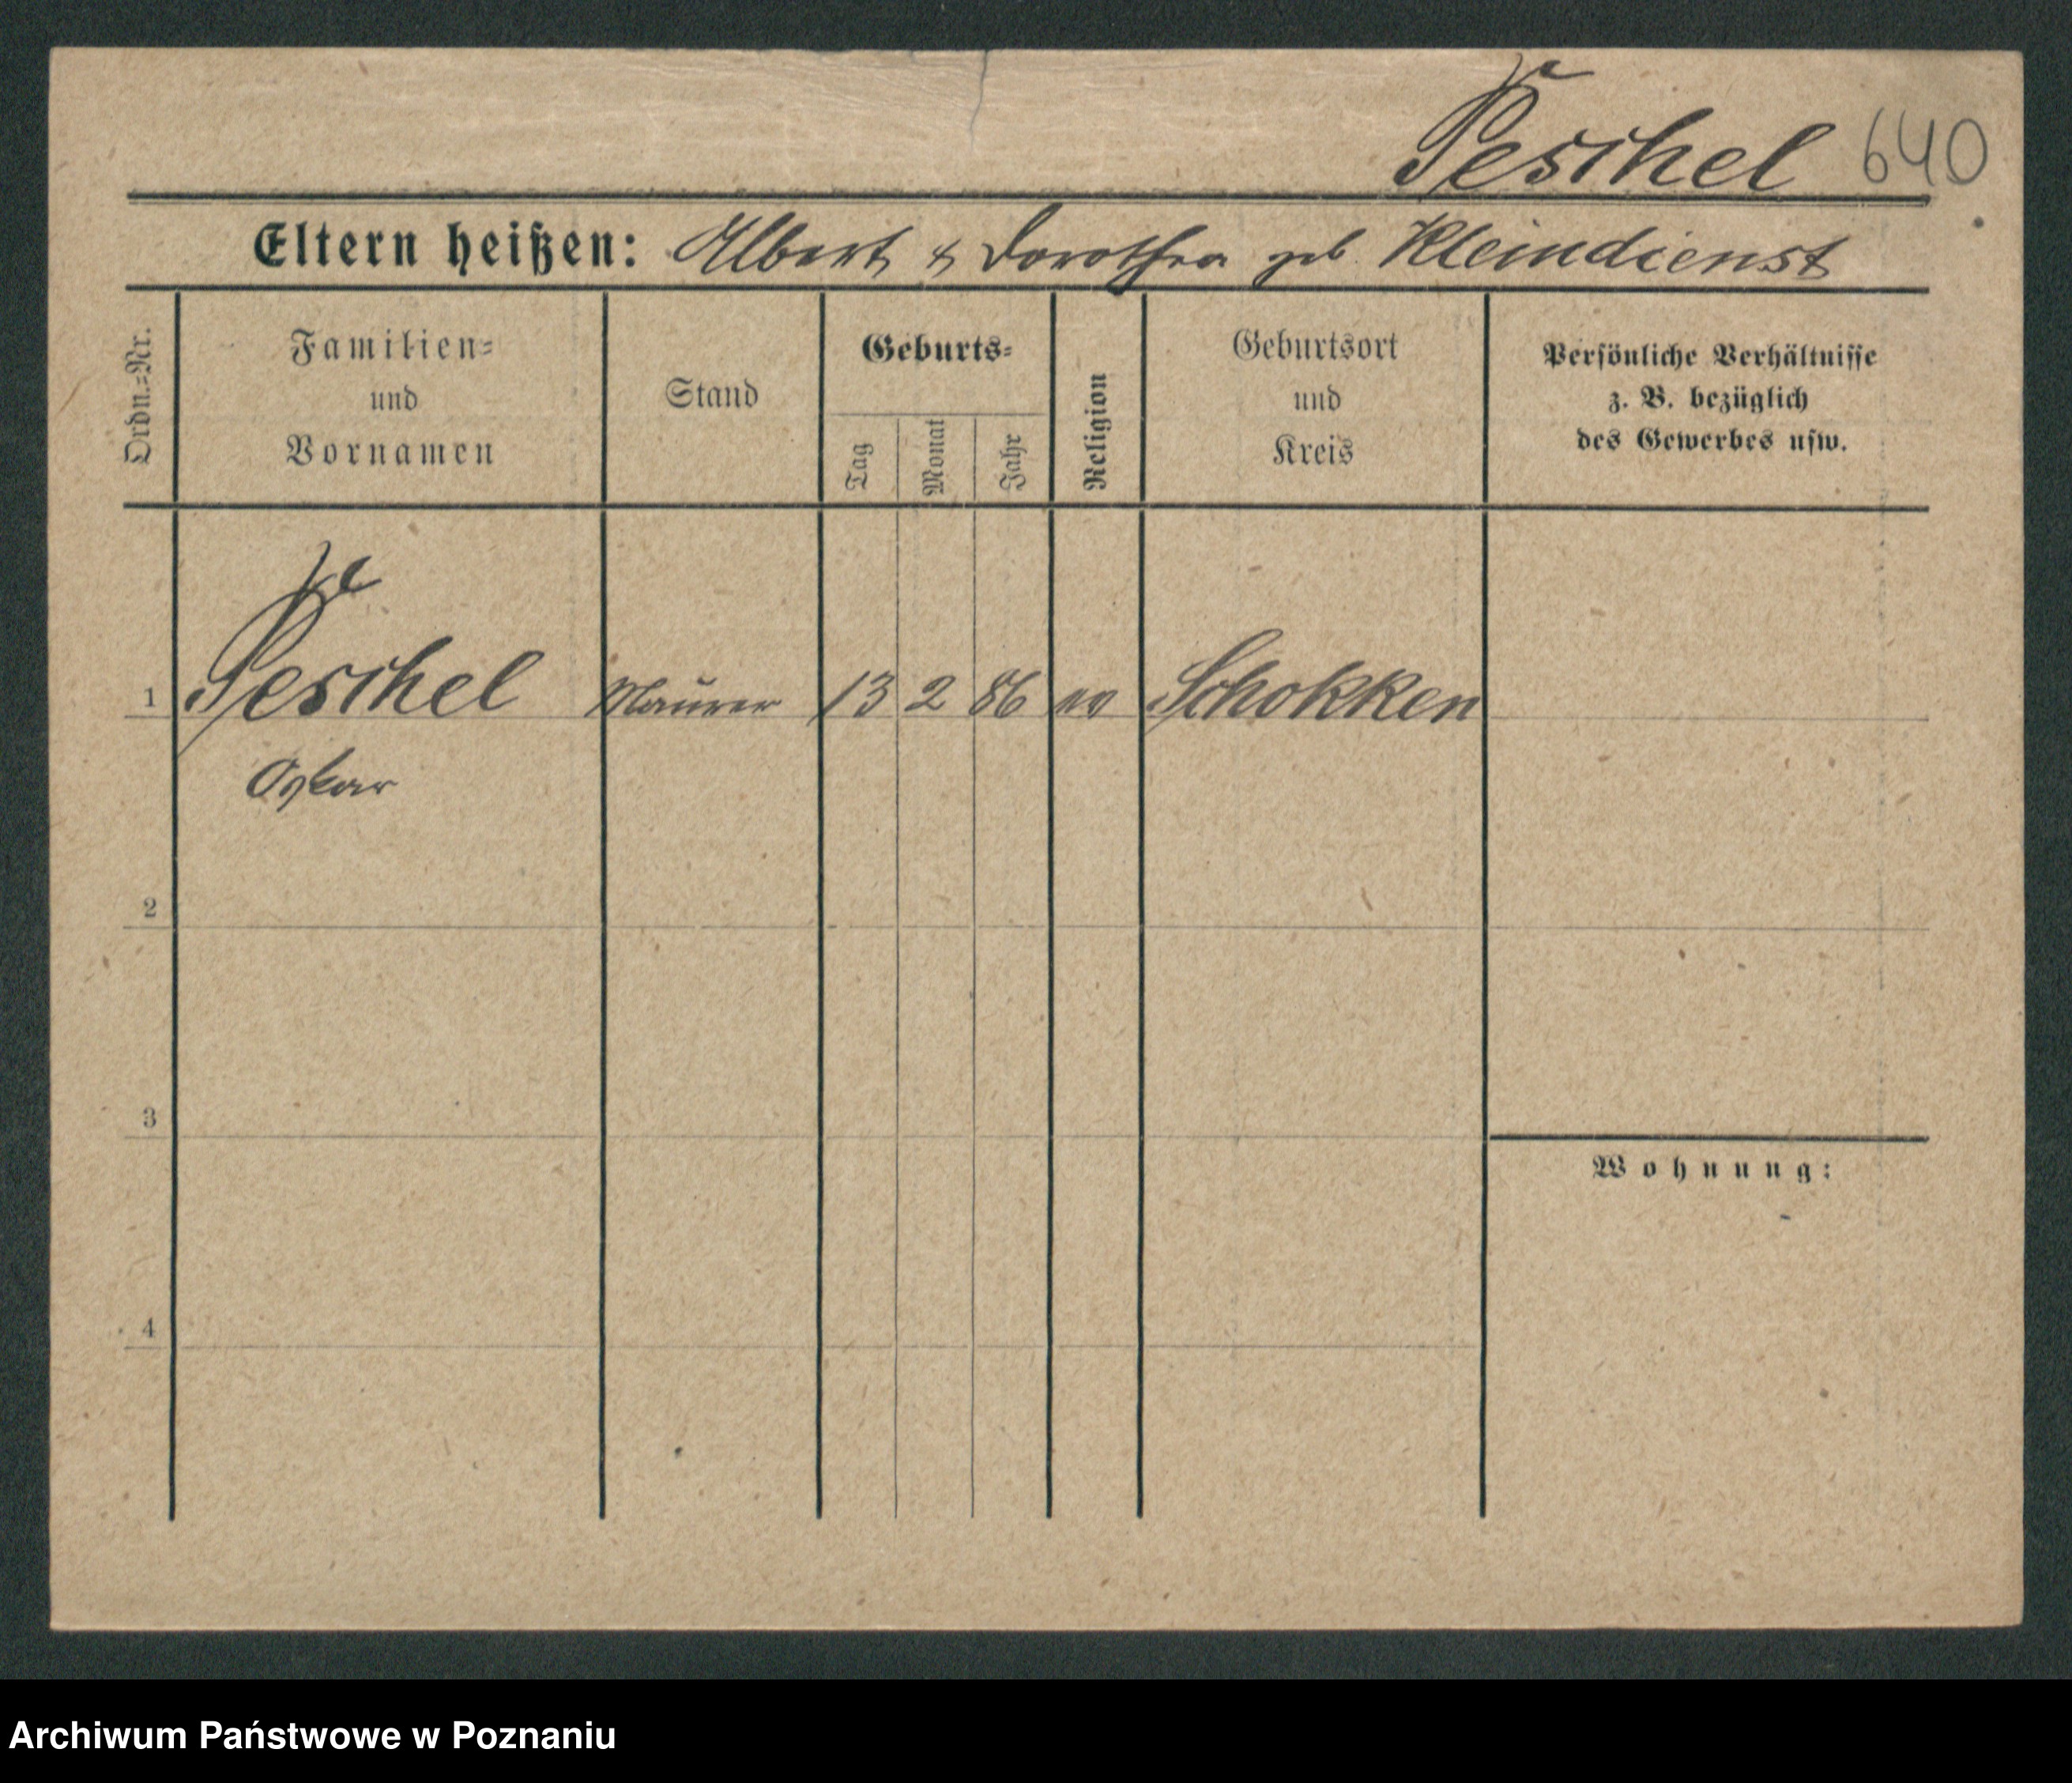 Peschel 640
Eltern heißen: Albert & Dorothea geb. Kleindienst
Ordn.=Nr.
Familien=
und
Vornamen
Stand
Geburts=
Tag
Monat
Jahr
Religion
Geburtsort
und
Kreis
Persönliche Verhältnisse
z. B. bezüglich
des Gewerbes usw.
1 Peschel Maurer 13 2 86 ev Schokken
Oskar
2
3
Wohnung:
4
Archiwum Państwowe w Poznaniu